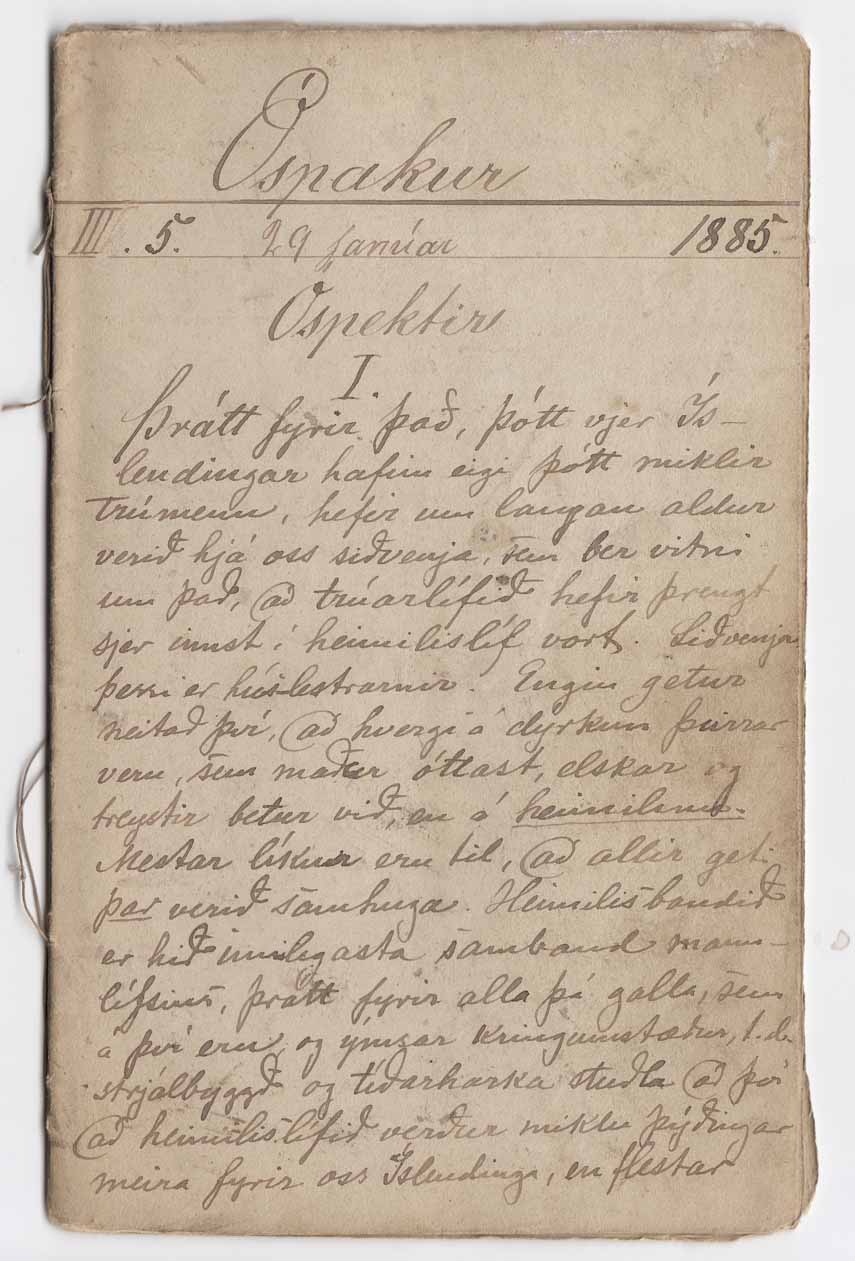 Óspakur
III. 5. 29 janúar 1885.
Óspektir
I.
Þrátt fyrir það, þótt vjer Ís-
lendingar hafim eigi þótt miklir
trúmenn, hefir um langan aldur
verið hjá oss siðvenja, sem ber vitni
um það, að trúarlífið hefir þrengt
sjer innst í heimilislíf vort. Siðvenja
þessi er húslestrarnir. Engin getur
neitað því, að hvergi á dyrkun þeirrar
veru, sem maður óttast, elskar og
treystir betur við, en á heimilinu.
Mestar líkur eru til, að allir geti
þar verið samhuga. Heimilisbandið
er hið innilegasta samband mann-
lífsins, þrátt fyrir alla þá galla, sem
á því eru, og ýmsar kringumstæður, t.d.
strjálbyggð og tíðarharka stuðla að því
að heimilislífið verður miklu þýðingar
meira fyrir oss Íslendinga, en flestar